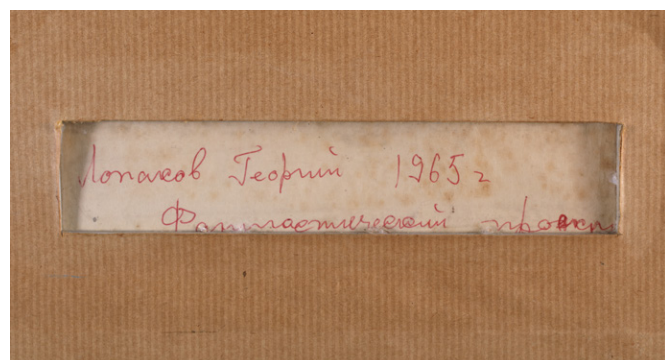 Лопаков Георгий 1965 г
Фантастический проект